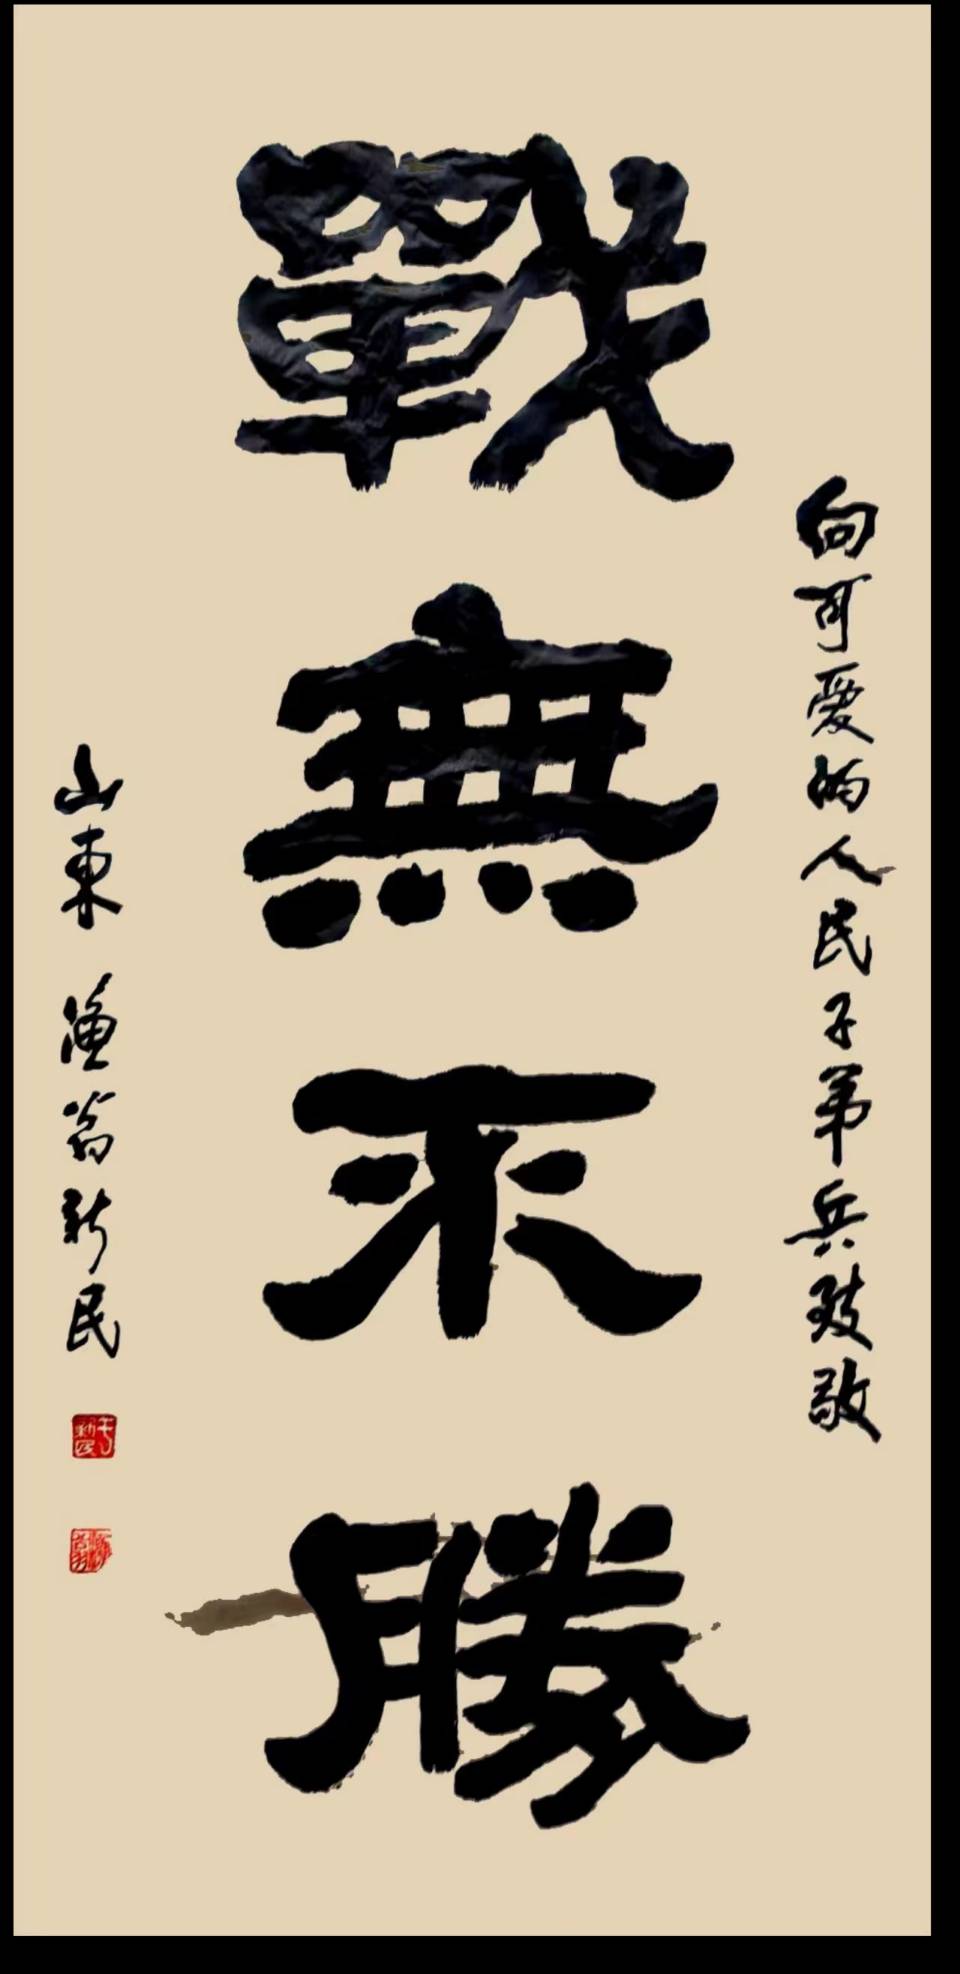 向可爱的人民子弟兵致敬
戰無不勝
山東 漁翁新民